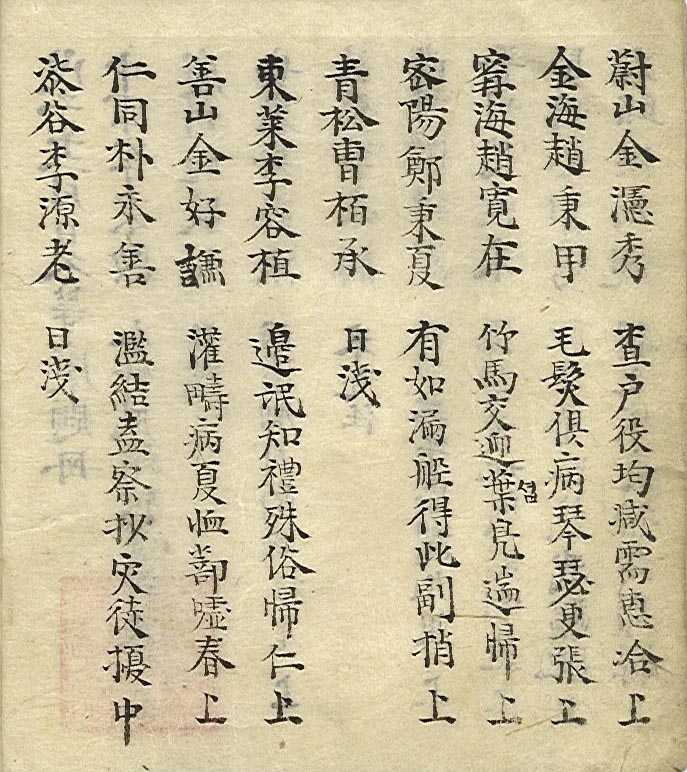 蔚山金憑秀 查戶役均减需惠洽上
金海趙秉甲 毛髮俱病琴瑟更張上
寧海趙寬在 竹馬交迎葉섭鳧遄歸上
密陽鄭秉夏 有如漏船得此副梢上
青松曹栢承 日淺
東萊李容植 邊氓知禮殊俗歸仁上
善山金好謙 灌疇病夏恤蔀噓春上
仁同朴永善 濫結盍察抄灾徒擾中
柒谷李源老 日淺